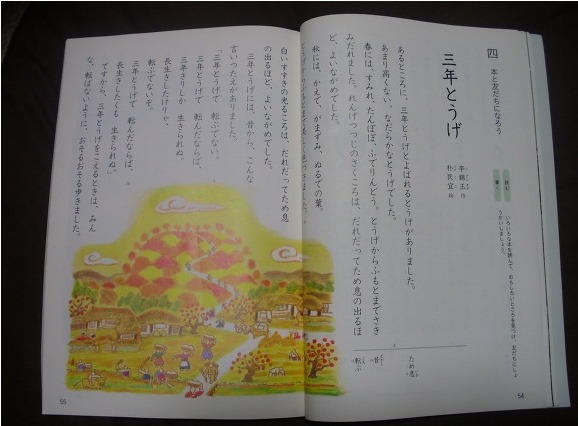 四 本と友だちになろう
三年とうげ
李錦玉 作
朴民宜 絵
読む
いろいろな本を読んで、おもしろいところを見つけ、友だちにしょ
うかいしましょう。
あるところに、三年とうげとよばれるとうげがありました。
あまり高くない、なだらかなとうげでした。
春には、すみれ、たんぽぽ、ふでりんどう。とうげからふもとまでさき
みだれました。れんげつつじのさくころは、だれだってため息の出るほ
ど、よいながめでした。
秋には、かえで、がまずみ、ぬるでの葉。
白いすすきの光るころは、だれだってため息
の出るほど、よいながめでした。
三年とうげには、昔から、こんな
言いつたえがありました。
「三年とうげで 転ぶでない。
三年とうげで 転んだならば、
三年きりしか 生きられぬ。
長生きしたけりゃ、
転ぶでないぞ。
三年とうげで 転んだならば、
長生きしたくも 生きられぬ。」
ですから、三年とうげをこえるときは、みん
な、転ばないように、おそるおそる歩きました。
ため息
昔
転ぶ
54
55